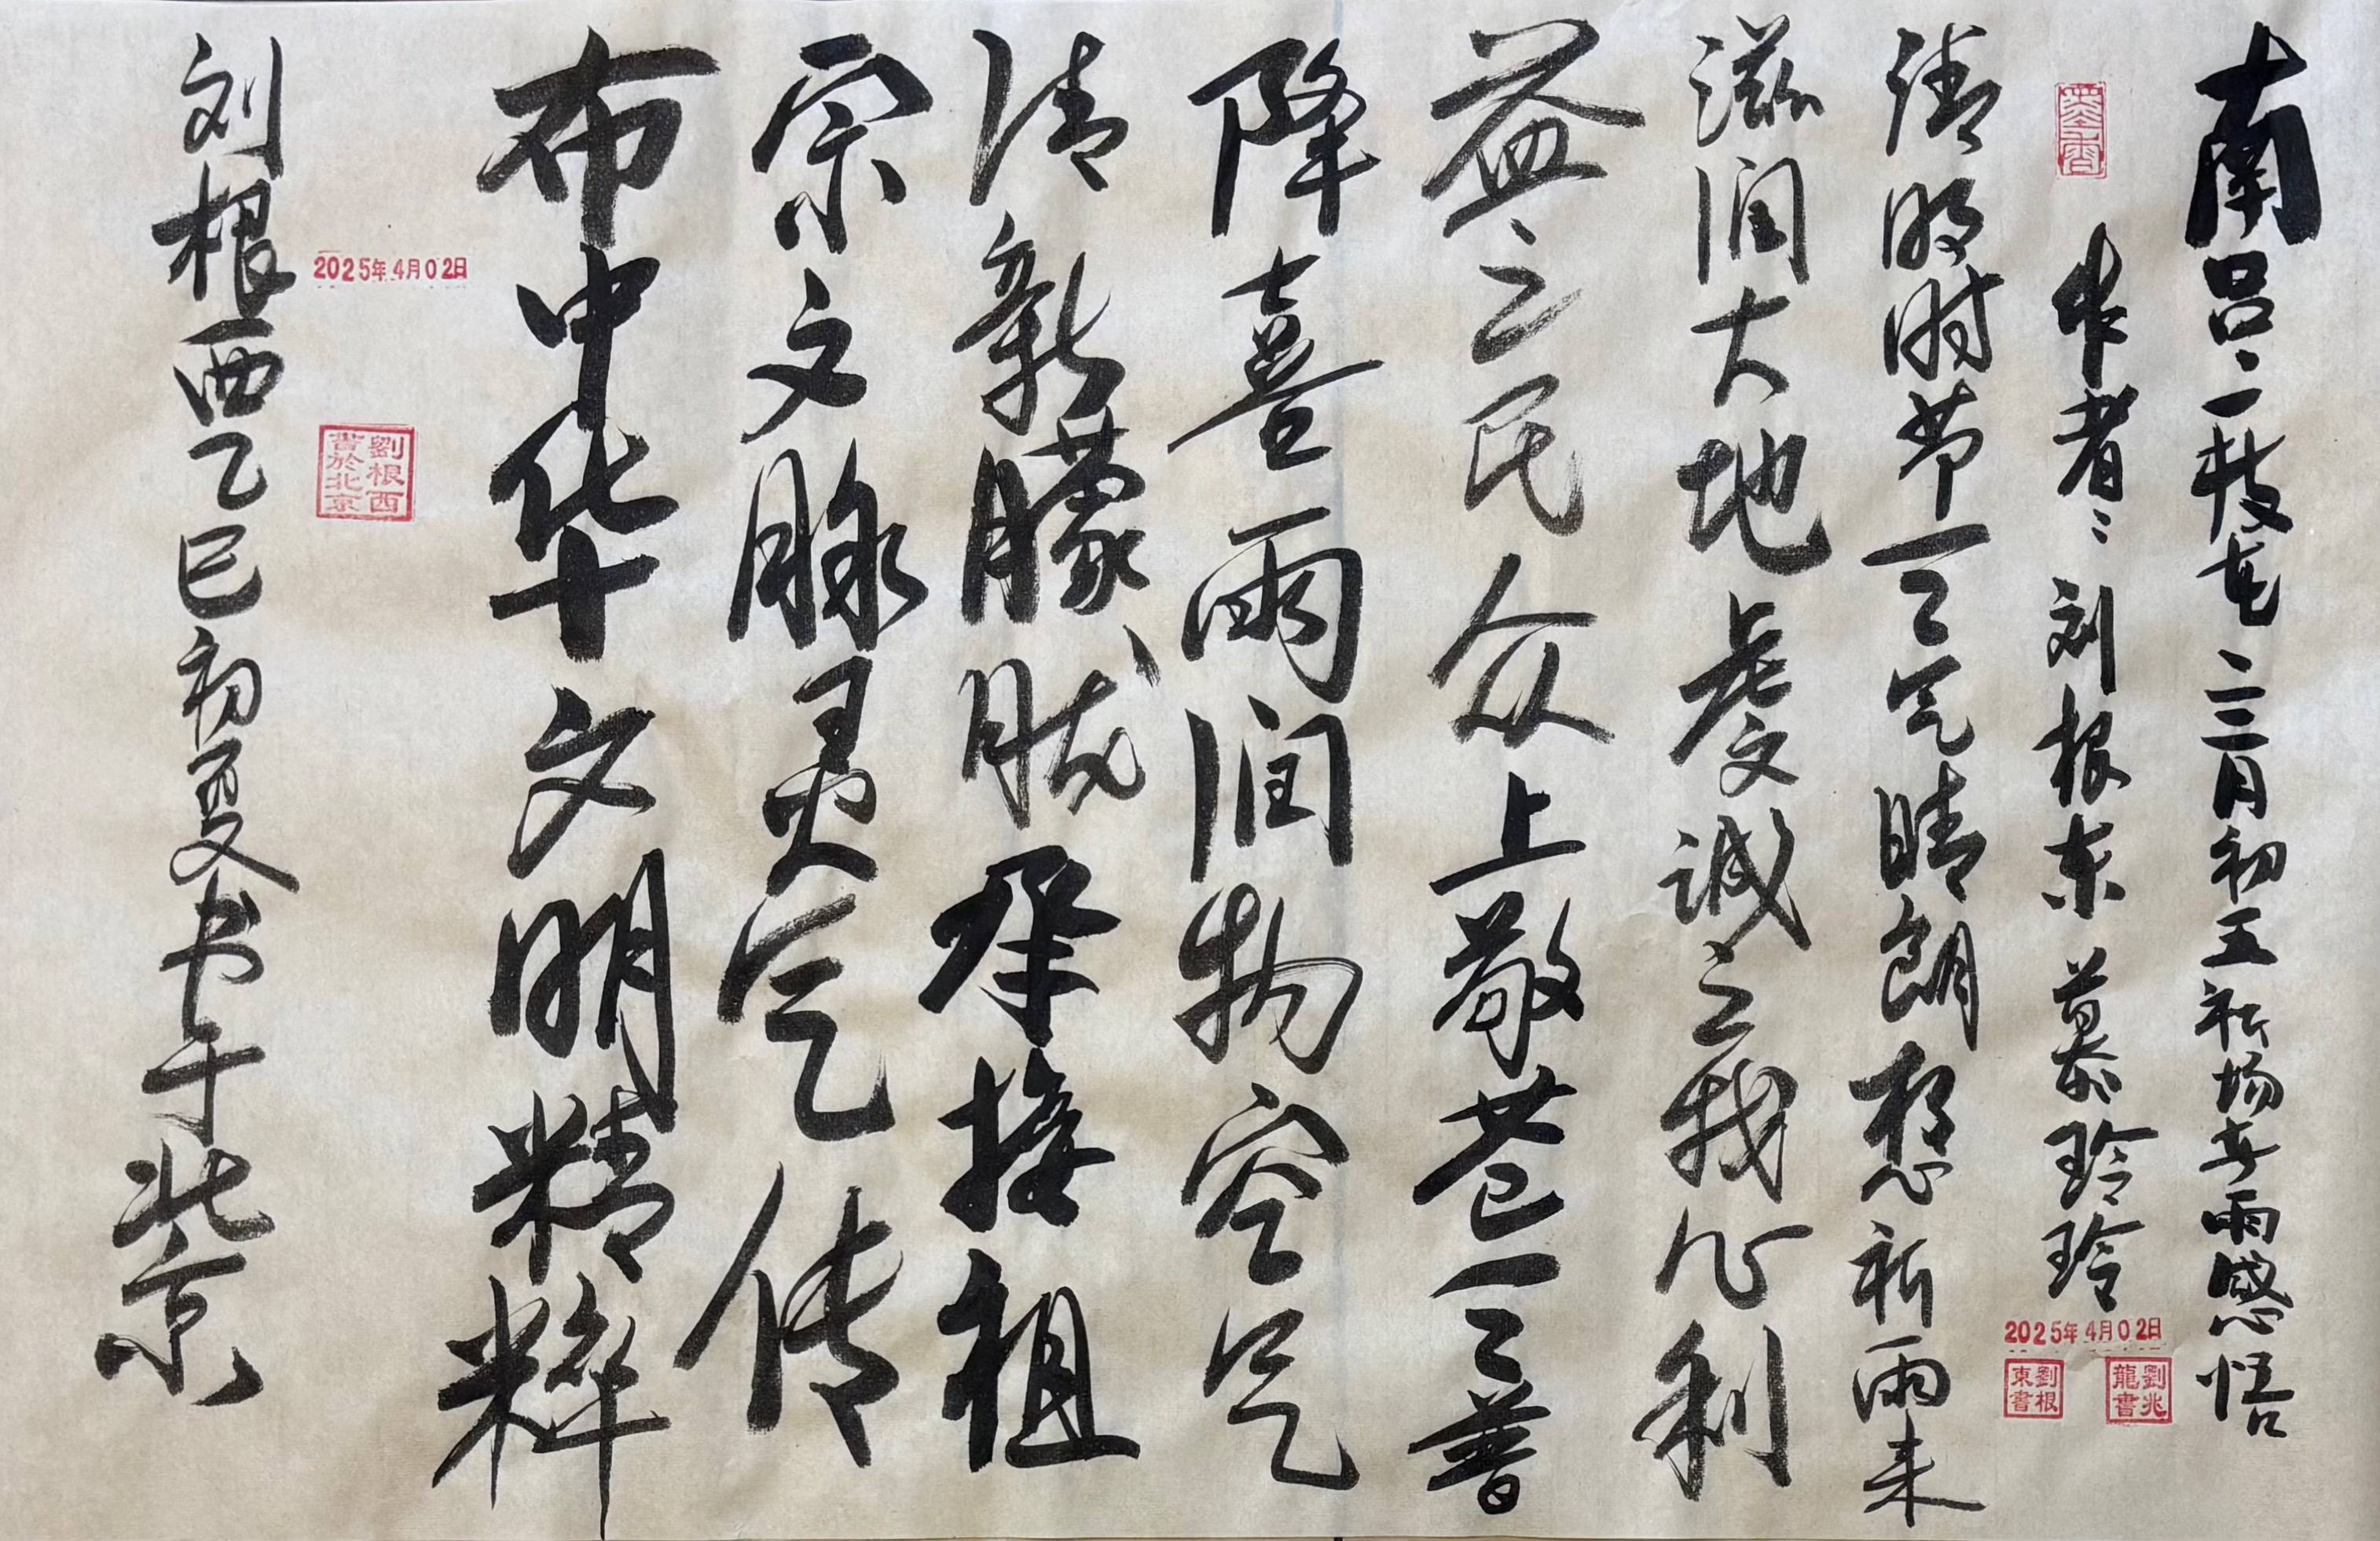 南吕·一枝花 二三月初五祈场喜雨感悟
作者：刘根东 慕泰玲玲
2025年4月02日
劉根東書
劉兆龍書
清明时节天气晴朗想祈雨来
滋润大地虔诚之我心利
益之民众上敬苍天普
降喜雨润物空气
清新朦胧承接祖
宗文脉灵气传
布中华文明精粹
刘根西乙巳初夏书于北京
2025年4月02日
劉根西書於北京